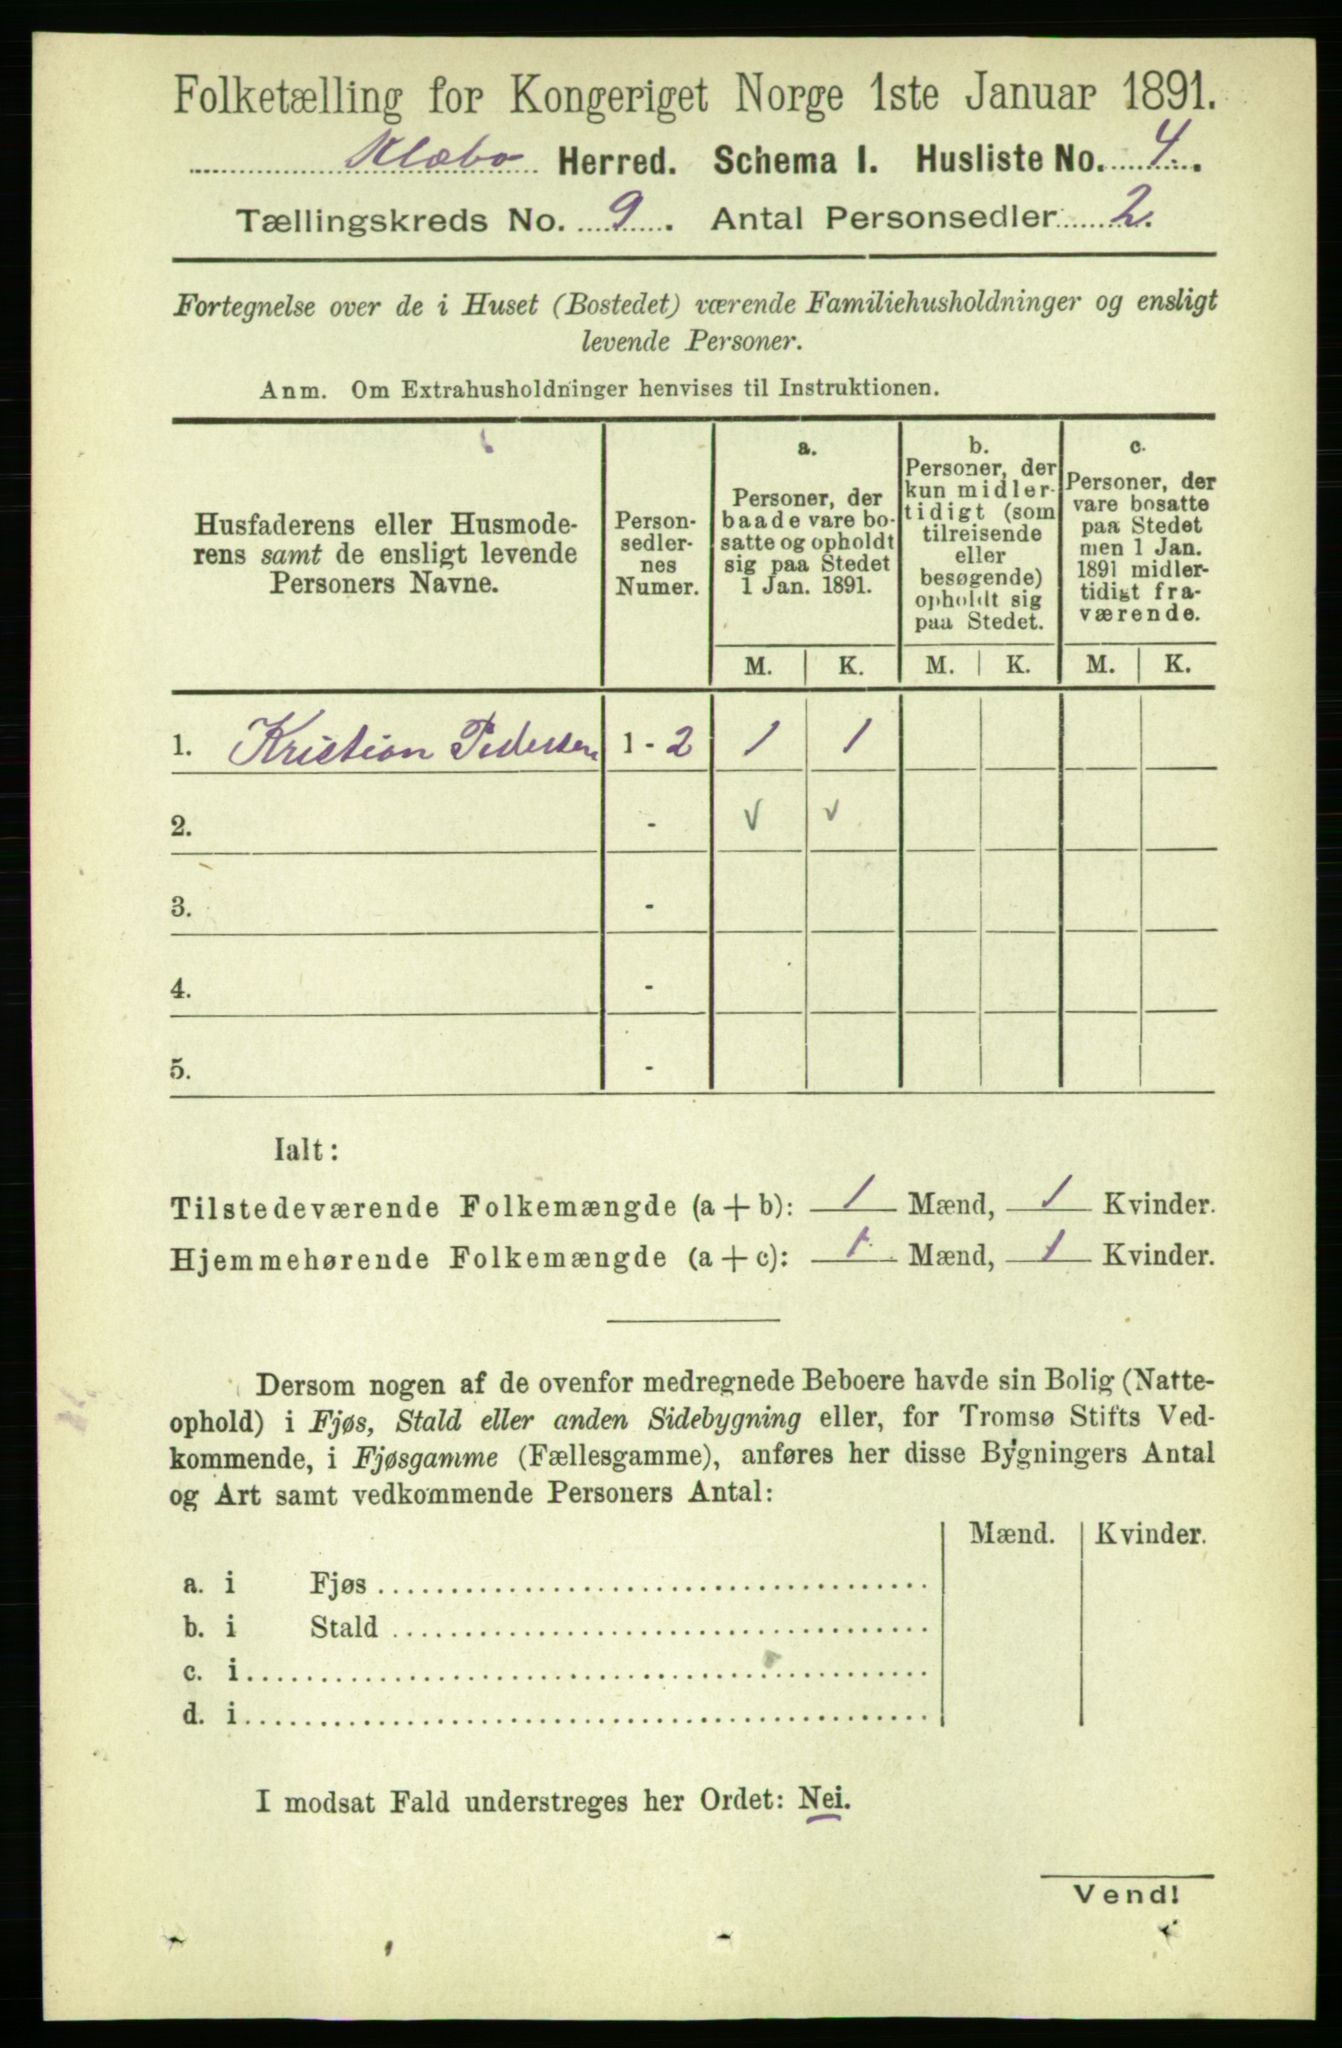 Folketælling for Kongeriget Norge 1ste Januar 1891.
Klæbo Herred. Schema 1. Husliste No. 4.
Tællingskreds No. 9. Antal Personsedler 2.
Fortegnelse over de i Huset (Bostedet) værende Familiehusholdninger og ensligt
levende Personer.
Anm. Om Extrahusholdninger henvises til Instruktionen.
Husfaderens eller Husmode-
rens samt de ensligt levende
Personers Navne.
Person-
sedler-
nes
Numer.
a.
Personer, der
baade vare bo-
satte og opholdt
sig paa Stedet
1 Jan. 1891.
b.
Personer, der
kun midler-
tidigt (som
tilreisende
eller
besøgende)
opholdt sig
paa Stedet.
c.
Personer, der
vare bosatte
paa Stedet
men 1 Jan.
1891 midler-
tidigt fra-
værende.
M. K. M. K. M. K.
1. Kristian Pedersen 1 - 2 1 1
2. - √ √
3. -
4. -
5. -
Ialt:
Tilstedeværende Folkemængde (a + b): 1 Mænd, 1 Kvinder.
Hjemmehørende Folkemængde (a + c): 1 Mænd, 1 Kvinder.
Dersom nogen af de ovenfor medregnede Beboere havde sin Bolig (Natte-
ophold) i Fjøs, Stald eller anden Sidebygning eller, for Tromsø Stifts Ved-
kommende, i Fjøsgamme (Fællesgamme), anføres her disse Bygningers Antal
og Art samt vedkommende Personers Antal:
Mænd. Kvinder.
a. i Fjøs
b. i Stald
c. i
d. i
I modsat Fald understreges her Ordet: Nei.
Vend!